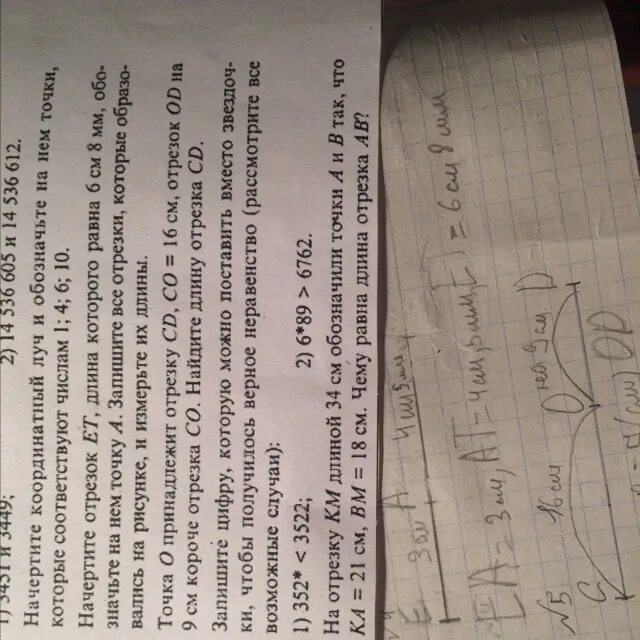 1) 3451 и 3449; 2) 14 536 605 и 14 536 612.
Начертите координатный луч и обозначьте на нем точки,
которые соответствуют числам 1; 4; 6; 10.
Начертите отрезок ET, длина которого равна 6 см 8 мм, обо-
значьте на нем точку A. Запишите все отрезки, которые образо-
вались на рисунке, и измерьте их длины.
Точка O принадлежит отрезку CD, CO = 16 см, отрезок OD на
9 см короче отрезка CO. Найдите длину отрезка CD.
Запишите цифру, которую можно поставить вместо звездоч-
ки, чтобы получилось верное неравенство (рассмотрите все
возможные случаи):
1) 352* < 3522; 2) 6*89 > 6762.
На отрезку KM длиной 34 см обозначили точки A и B так, что
KA = 21 см, BM = 18 см. Чему равна длина отрезка AB?
E 3см A 4см
EA = 3см, AT = 4см, ET = 6см 8мм
№5 16см 9см
C O D
OD